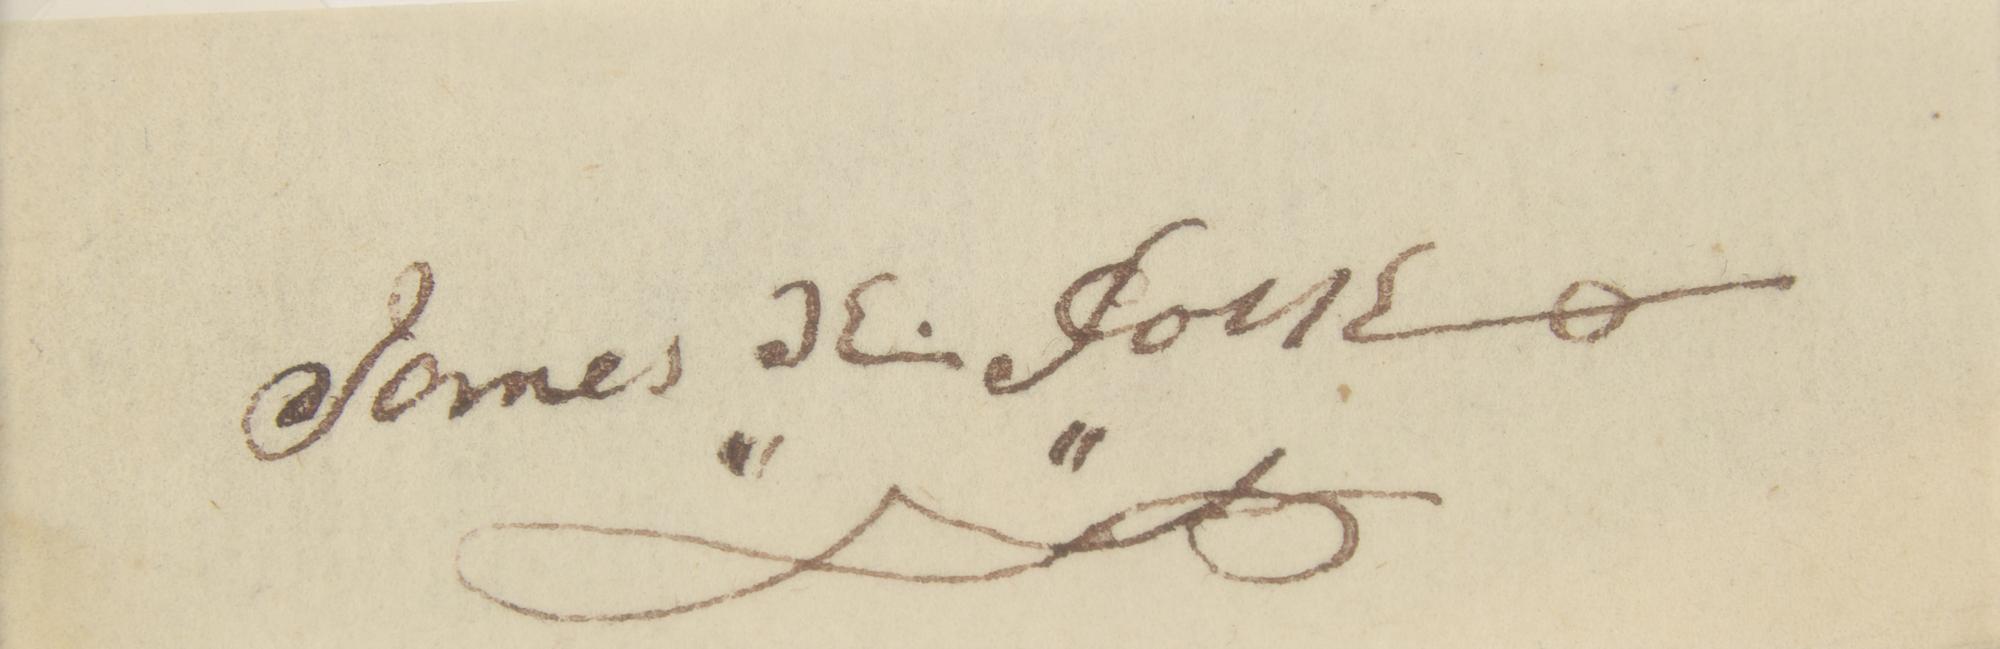 James K. Polk
" "